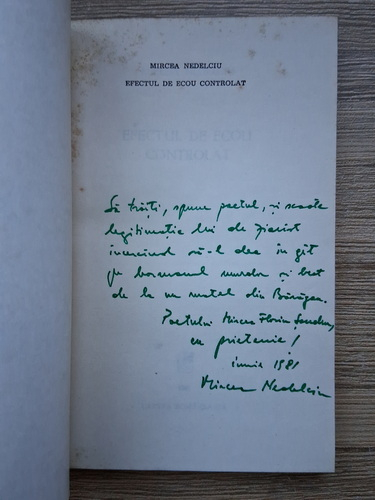 MIRCEA NEDELCIU
EFECTUL DE ECOU CONTROLAT
EFECTUL DE ECOU
CONTROLAT
Să trăiți, spune poetul, și scoate
legitimația lui de ziarist
încercînd să-l dea în gît
pe barmanul murdar și beat
de la un motel din Bărăgan.
Poetului Mircea Florin Șandru,
cu prietenie!
iunie 1981
Mircea Nedelciu